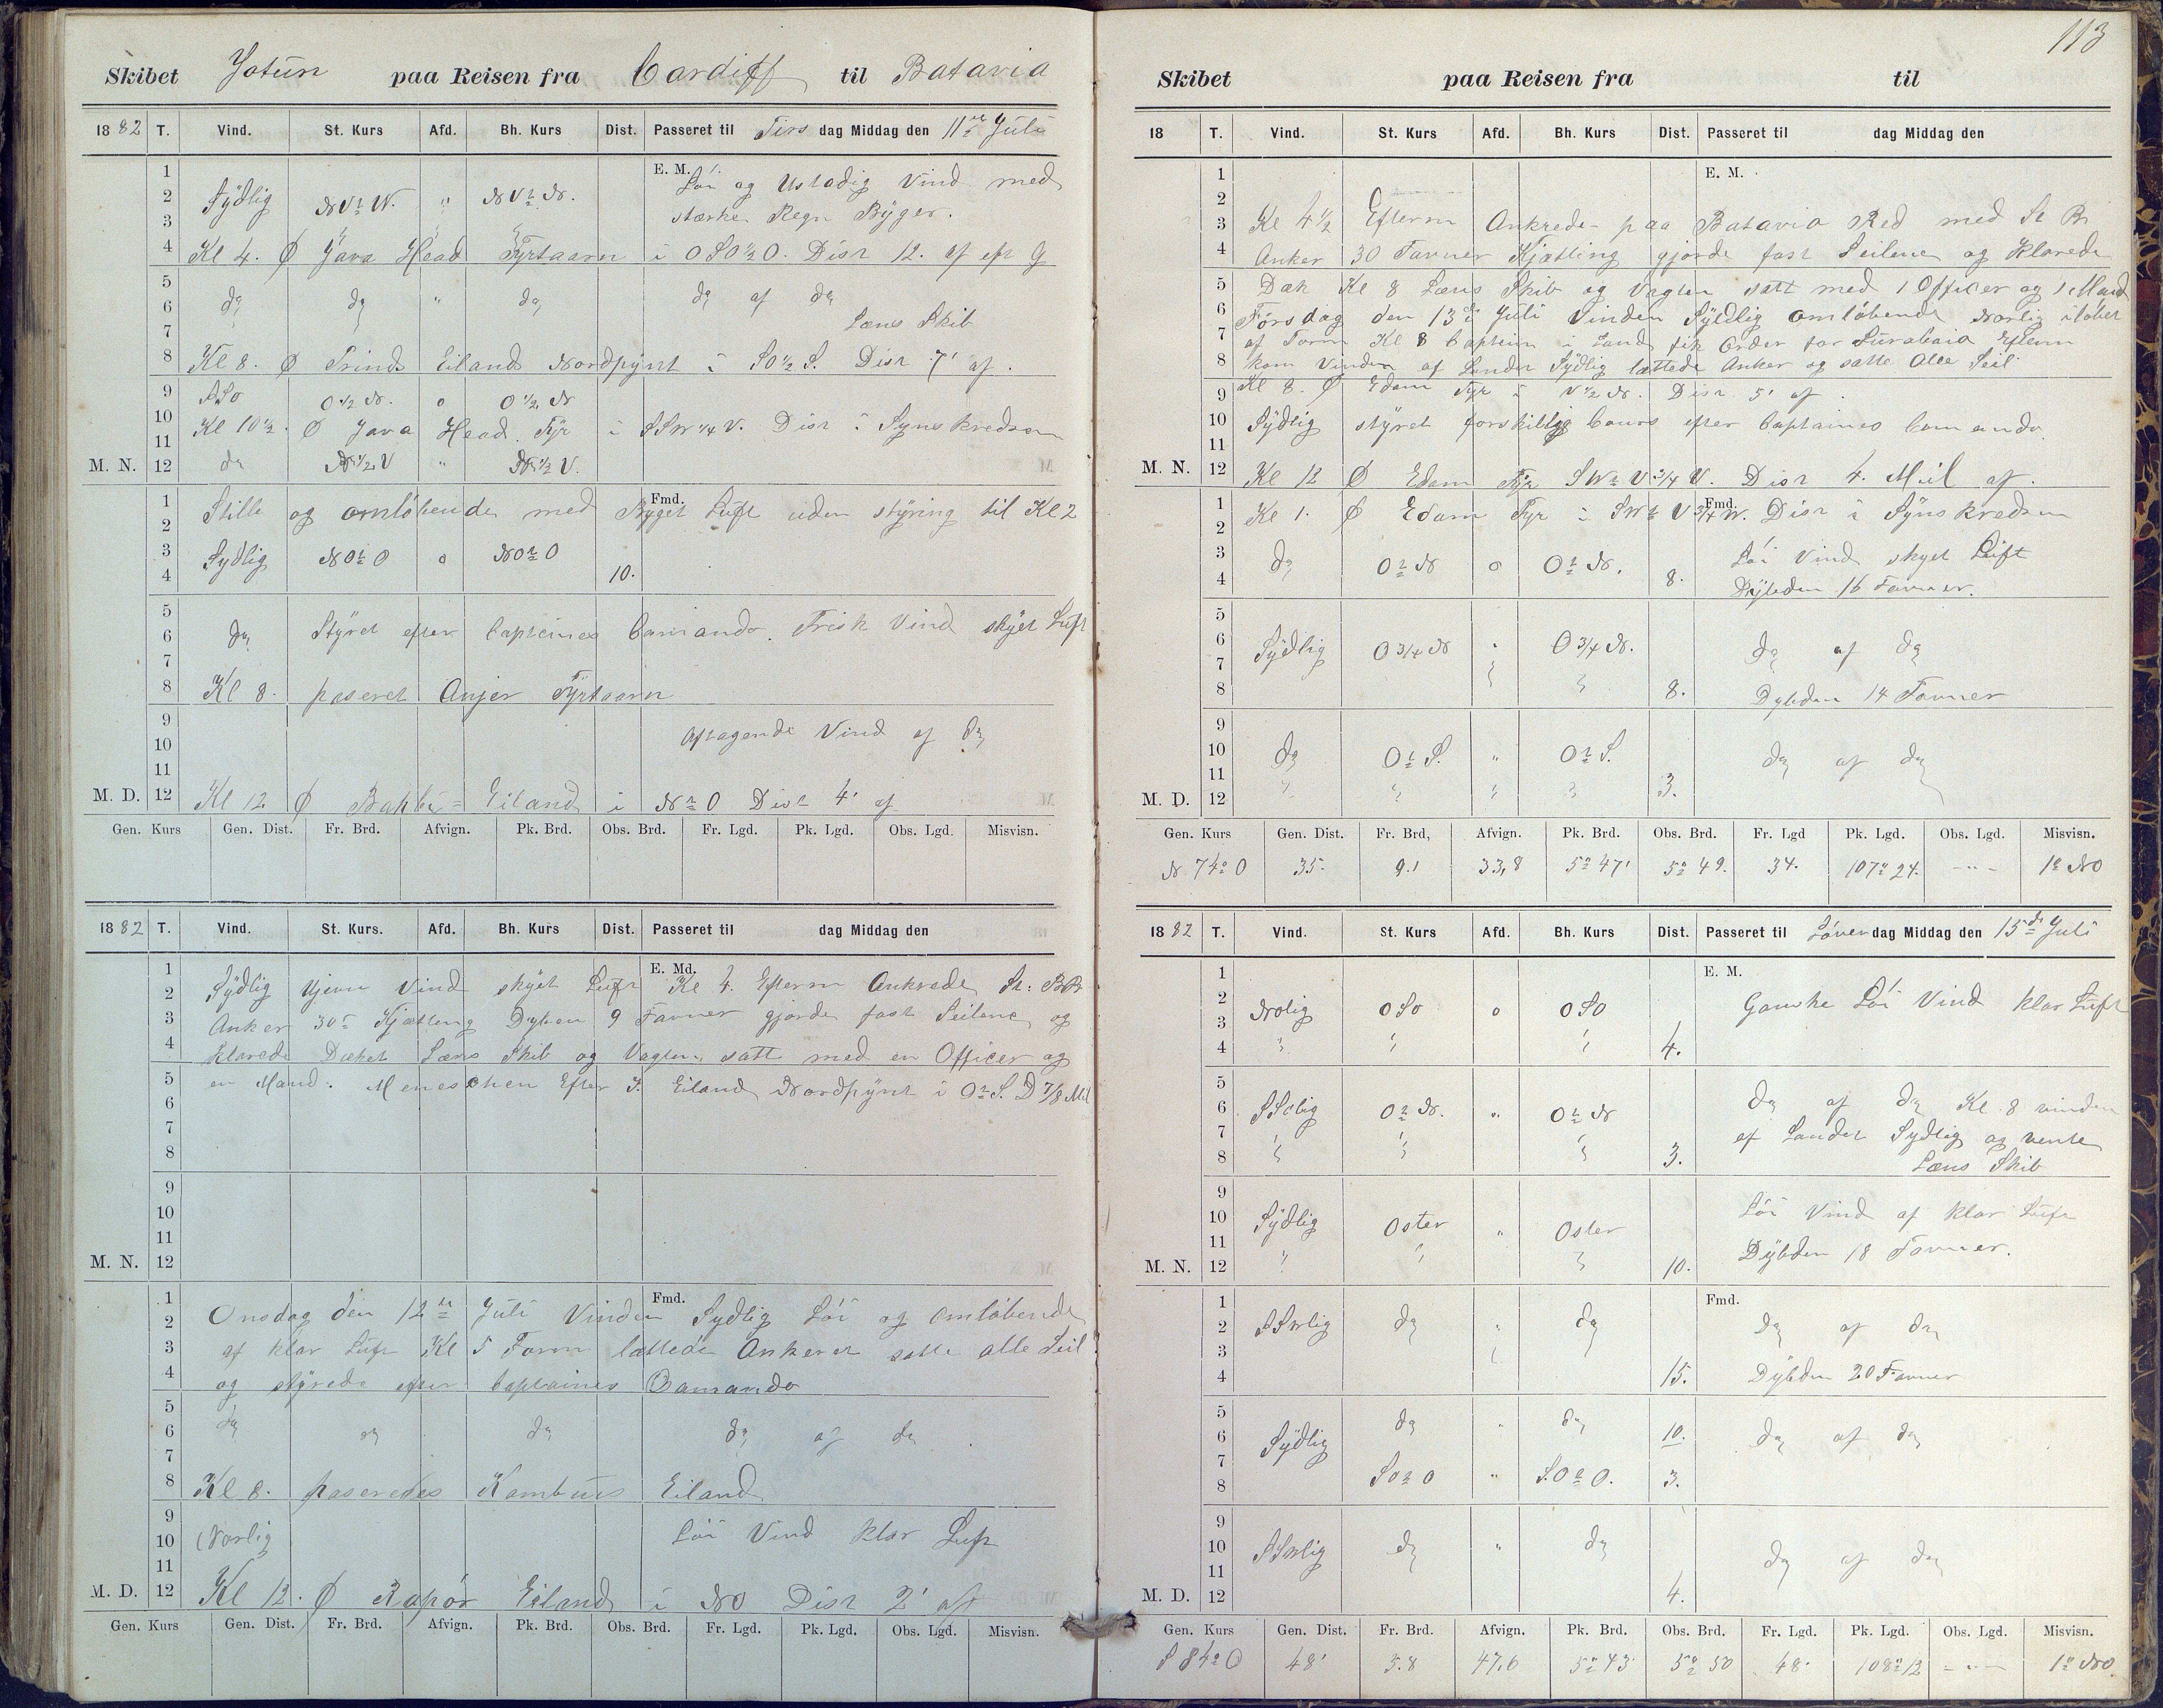 Skibet Jotün paa Reisen fra Cardiff til Batavia
1882 T. Vind. St. Kurs Afd. Bh. Kurs Dist. Passeret til Tirs dag Middag den 11te Juli
1 E. M. Löi og Ustadig Vind med
2 Sÿdlig NVtN. " NVtN.
3 stærke Regn Bÿger.
4 Kl 4. Ø Java Head Fÿrtaarn i OSO½O. Dist 12. af
5
6 do do " do do af do
7 Læns Skib
8 Kl 8. Ø Prinds Eiland Nordpÿnt i SO½S. Dist 7' af.
9 SSO O½N. o O½N
10 Kl 10½. Ø Java Head Fÿr i SSW¼V. Dist i Synskredsen
11
M. N. 12 do N½V " N½V.
1 Fmd.
2 Stille og omlöbende med Bÿget Luft uden stÿring til Kl 2
3 Sydlig NOtO o NOtO
4 10.
5
6 do Stÿret efter Capteines Comando. Frisk Vind skÿet Luft
7
8 Kl 8. paseret Anjer Fÿrtaarn
9
10 Aftagende Vind af do
11
M. D. 12 Kl 12 Ø Eiland i NtO Dist 4' af
Gen. Kurs Gen. Dist. Fr. Brd. Afvign. Pk. Brd. Obs. Brd. Fr. Lgd. Pk. Lgd. Obs. Lgd. Misvisn.
1882 T. Vind. St. Kurs. Afd. Bh. Kurs Dist. Passeret til dag Middag den
1 E. Md.
2 Sÿdlig Ujevn Vind skÿet Luft Kl 4. Efterm Ankrede St: B
3 Anker 30 Kjætting Dyben 9 Favner gjorde fast Seilene og
4 klarede Dæket Læns Skib og Vagten satt med en Officer og
5 en Mand. Eiland Nordpÿnt i OtS. D 7/8 Mil
6
7
8
9
10
11
M. N. 12
1 Fmd.
2 Onsdag den 12te Juli Vinden Sydlig Löi og omlöbende
3 af klar Luft Kl 5 Form lættede Ankeret satte alle Seil
4 og stÿrede efter Captaines Comando
5
6 do do do do af do
7
8 Kl 8. paseredes Kombuis Eiland
9
10 Norlig Löi Vind klar Luft
11
M. D. 12 Kl 12. Ø Rapör Eiland i NO Dist 2' af
Gen. Kurs Gen. Dist. Fr. Brd. Afvign. Pk. Brd. Obs. Brd. Fr. Lgd. Pk. Lgd. Obs. Lgd. Misvisn.
113
Skibet paa Reisen fra til
18 T. Vind. St. Kurs Afd. Bh. Kurs Dist. Passeret til dag Middag den
1 E. M.
2
3 Kl 4½ Efterm Ankrede paa Batavia Red med St B
4 Anker 30 Favner Kjætting gjorde fast Seilene og klarede
5 Dæk Kl 8 Læns Skib og Vagten satt med 1 Officer og 1 Mand
6 Torsdag den 13de Juli Vinden Sÿdlig omlöbende Norlig i löbet
7 af Form Kl 8 Captein i Land fik Order for Surabaia Efterm
8 kom Vinden af Landet Sÿdlig lættede Anker og satte Alle Seil
9 Kl 8. Ø Edam Fÿr i V½N. Dist 5' af.
10 Sÿdlig stÿret forskillige Cours efter Captaines Comando
11
M. N. 12 Kl 12 Ø Edam Fÿr SWtV¾V. Dist 4. Mil af.
1 Fmd.
2 Kl 1. Ø Edam Fÿr i SWtV¾W. Dist i Sÿnskredsen
3 do OtN o OtN. Löi Vind skyet Luft
4 8. Dÿbden 16 Favner.
5
6 Sÿdlig O¾N " O¾N. do af do
7
8 8. Dybden 14 Favner
9
10 do OtS. " OtS. do af do
11
M. D. 12 3.
Gen. Kurs Gen. Dist. Fr. Brd, Afvign. Pk. Brd. Obs. Brd. Fr. Lgd Pk. Lgd. Obs. Lgd. Misvisn.
N 74° O 35. 9.1 33,8 5° 47' 5° 49. 34. 107° 24. - " - 1° NO
1882 T. Vind. St. Kurs Afd. Bh. Kurs Dist. Passeret til Löver dag Middag den 15de Juli
1 E. M.
2 Norlig OSO o OSO Ganske Löi Vind klar Luft
3
4 " " " 4.
5
6 SSOlig OtN. " OtN do af do Kl. 8 vinden
7 " " " af Landet Sydlig og vente
8 3. Læns Skib
9
10 Sÿdlig Oster " Oster Löi Vind af klar Luft
11
M. N. 12 " " " 10. Dÿbden 18 Favner.
1 Fmd.
2 SSWlig do " do do af do
3
4 15. Dÿbden 20 Favner
5
6 Sÿdlig do " do 10. do af do
7
8 SOtO " SOtO. 3.
9
10 SSWlig do " do do af do
11
M. D. 12 4.
Gen. Kurs Gen. Dist. Fr. Brd. Afvign. Pk. Brd. Obs. Brd. Fr. Lgd. Pk. Lgd. Obs. Lgd. Misvisn.
S 84° O 48' 5.8 47,6 5° 43' 5° 50 48. 108° 12 - " - 1° NO.